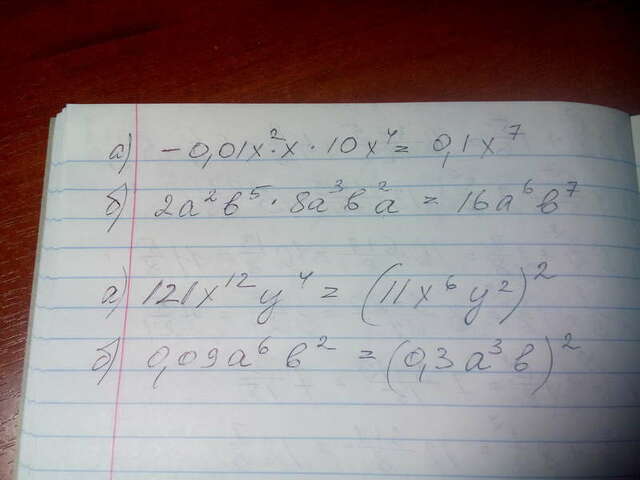 а) -0,01x²·x·10x⁴= 0,1x⁷
б) 2a²b⁵·8a³ba² = 16a⁶b⁷
а) 121x¹²y⁴ = (11x⁶y²)²
б) 0,09a⁶b² = (0,3a³b)²